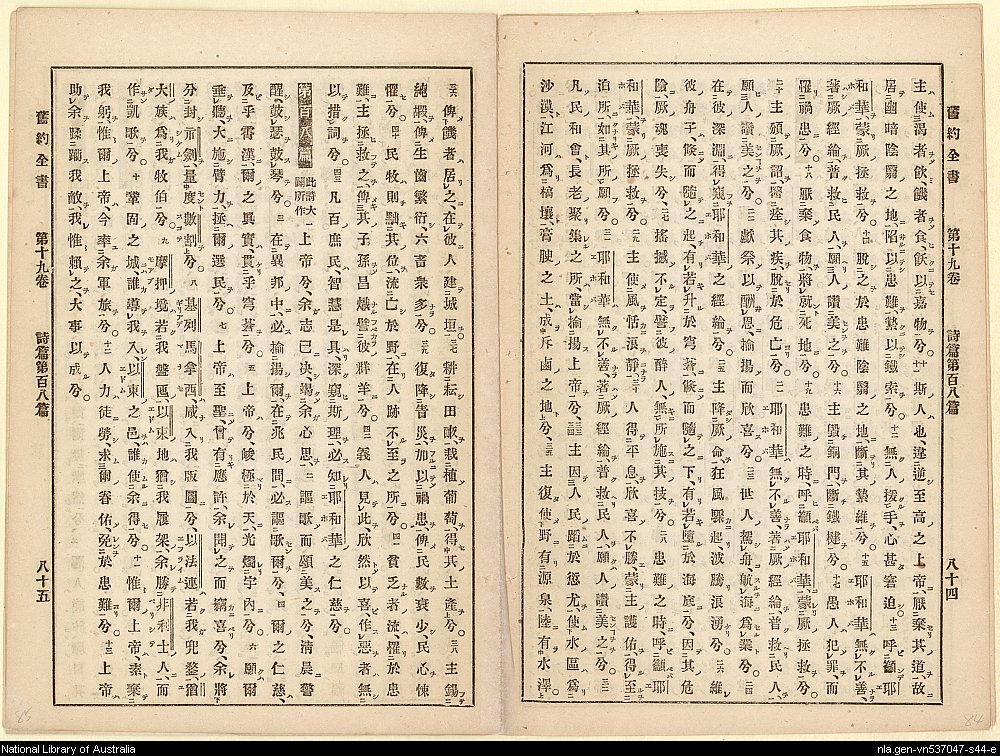 舊約全書 第十九卷 詩篇第百八篇 八十四
主使渴者飲、餓者食、飫以嘉物兮。十斯人也、違逆至高之上帝、厭棄其道、故
居幽暗陰翳之地、陷以患難、縶以鐵索兮。十二無人援手、心甚窘迫。十三呼籲耶
和華、蒙厥拯救兮。十四脫之於患難陰翳之地、斷其縶維兮。十五耶和華無不善、
著厥經綸、普救民人、願人讚美之兮。十六主毀銅門、斷鐵楗兮。十七愚人犯罪、而
罹禍患兮。十八厭棄食物、將就死地兮。十九患難之時、呼籲耶和華、蒙厥拯救兮。
二十主頒厥詔、醫痊其疾、脫於危亡兮。二一耶和華無不善、著厥經綸、普救民人、
願人讚美之兮。二二獻祭以酬恩、揄揚而欣喜兮。二三世人駕舟航海爲業兮。二四維
在彼深淵、得窺耶和華之經綸兮。二五主降厥命、狂風驟起、波勝浪湧兮。二六維
彼舟子、倐而隨之起、有若升於穹蒼、倐而隨之下、有若墮於海底兮、因其危
險、厥魂喪失兮。二七搖撼不定、譬彼醉人、無所施其技兮。二八患難之時、呼籲耶
和華、蒙厥拯救兮。二九主使風恬浪靜、三十人得平息、欣喜不勝、蒙主護佑、得至
泊所、如其所願兮。三一耶和華無不善、著厥經綸、普救民人、願人讚美之兮。三二
凡民和會、長老聚集之所、當揄揚上帝兮。三三主因人民蹈於愆尤、使水區爲
沙漠、江河爲槁壤、三四膏腴之土、成斥鹵之地兮、三五主復使野有源泉、陸有水澤。
三六俾餓者居之、在彼人建城垣。三七耕耘田畝、栽植葡萄、得其土產兮。三八主錫
純嘏、俾生齒繁衍、六畜衆多兮。三九復降眚災、加以禍患、俾民數衰少、民心悚
懼兮。四十民牧則黜其位、流亡於野、在人跡不至之所兮。四一貧乏者流、罹於患
難、主拯救之、俾其子孫昌熾、譬彼群羊兮。四二義人見此、欣然以喜、作惡者無
以措詞兮。四三凡百庶民、智慧是具、深窺斯理、必知耶和華之仁慈兮。
第百八篇 此詩大闢所作 一上帝兮、余志已決、竭余心思、二謳歌而頌美之兮、清晨警
醒、鼓瑟鼓琴兮。三在異邦中、必揄揚爾、在兆民間、必謳歌爾兮、四爾之仁慈、
及乎雲漢、爾之眞實、貫乎穹蒼兮。五上帝兮、峻極於天、光燭宇內兮。六願爾
垂聽、大施臂力、拯爾選民兮。七上帝至聖、曾有應許、余聞之而竊喜兮、余將
分封示劍、量度數割兮。八基列馬拿西、咸入我版圖兮、以法蓮若我兜鍪、猶
大族爲我牧伯兮。九摩押境若我盤匜、以東地猶我履架、余勝非利士人、而
作凱歌兮。十鞏固之城、誰導我入、以東之邑、誰使余得兮。十一惟爾上帝、素棄
我躬、惟爾上帝、今率余軍旅兮。十二人力徒勞、求爾眷佑、免於患難兮。十三上帝
助余、蹂躪我敵、我惟賴之、大事以成兮。
舊約全書 第十九卷 詩篇第百八篇 八十五
84
85
National Library of Australia
nla.gen-vn537047-s44-e